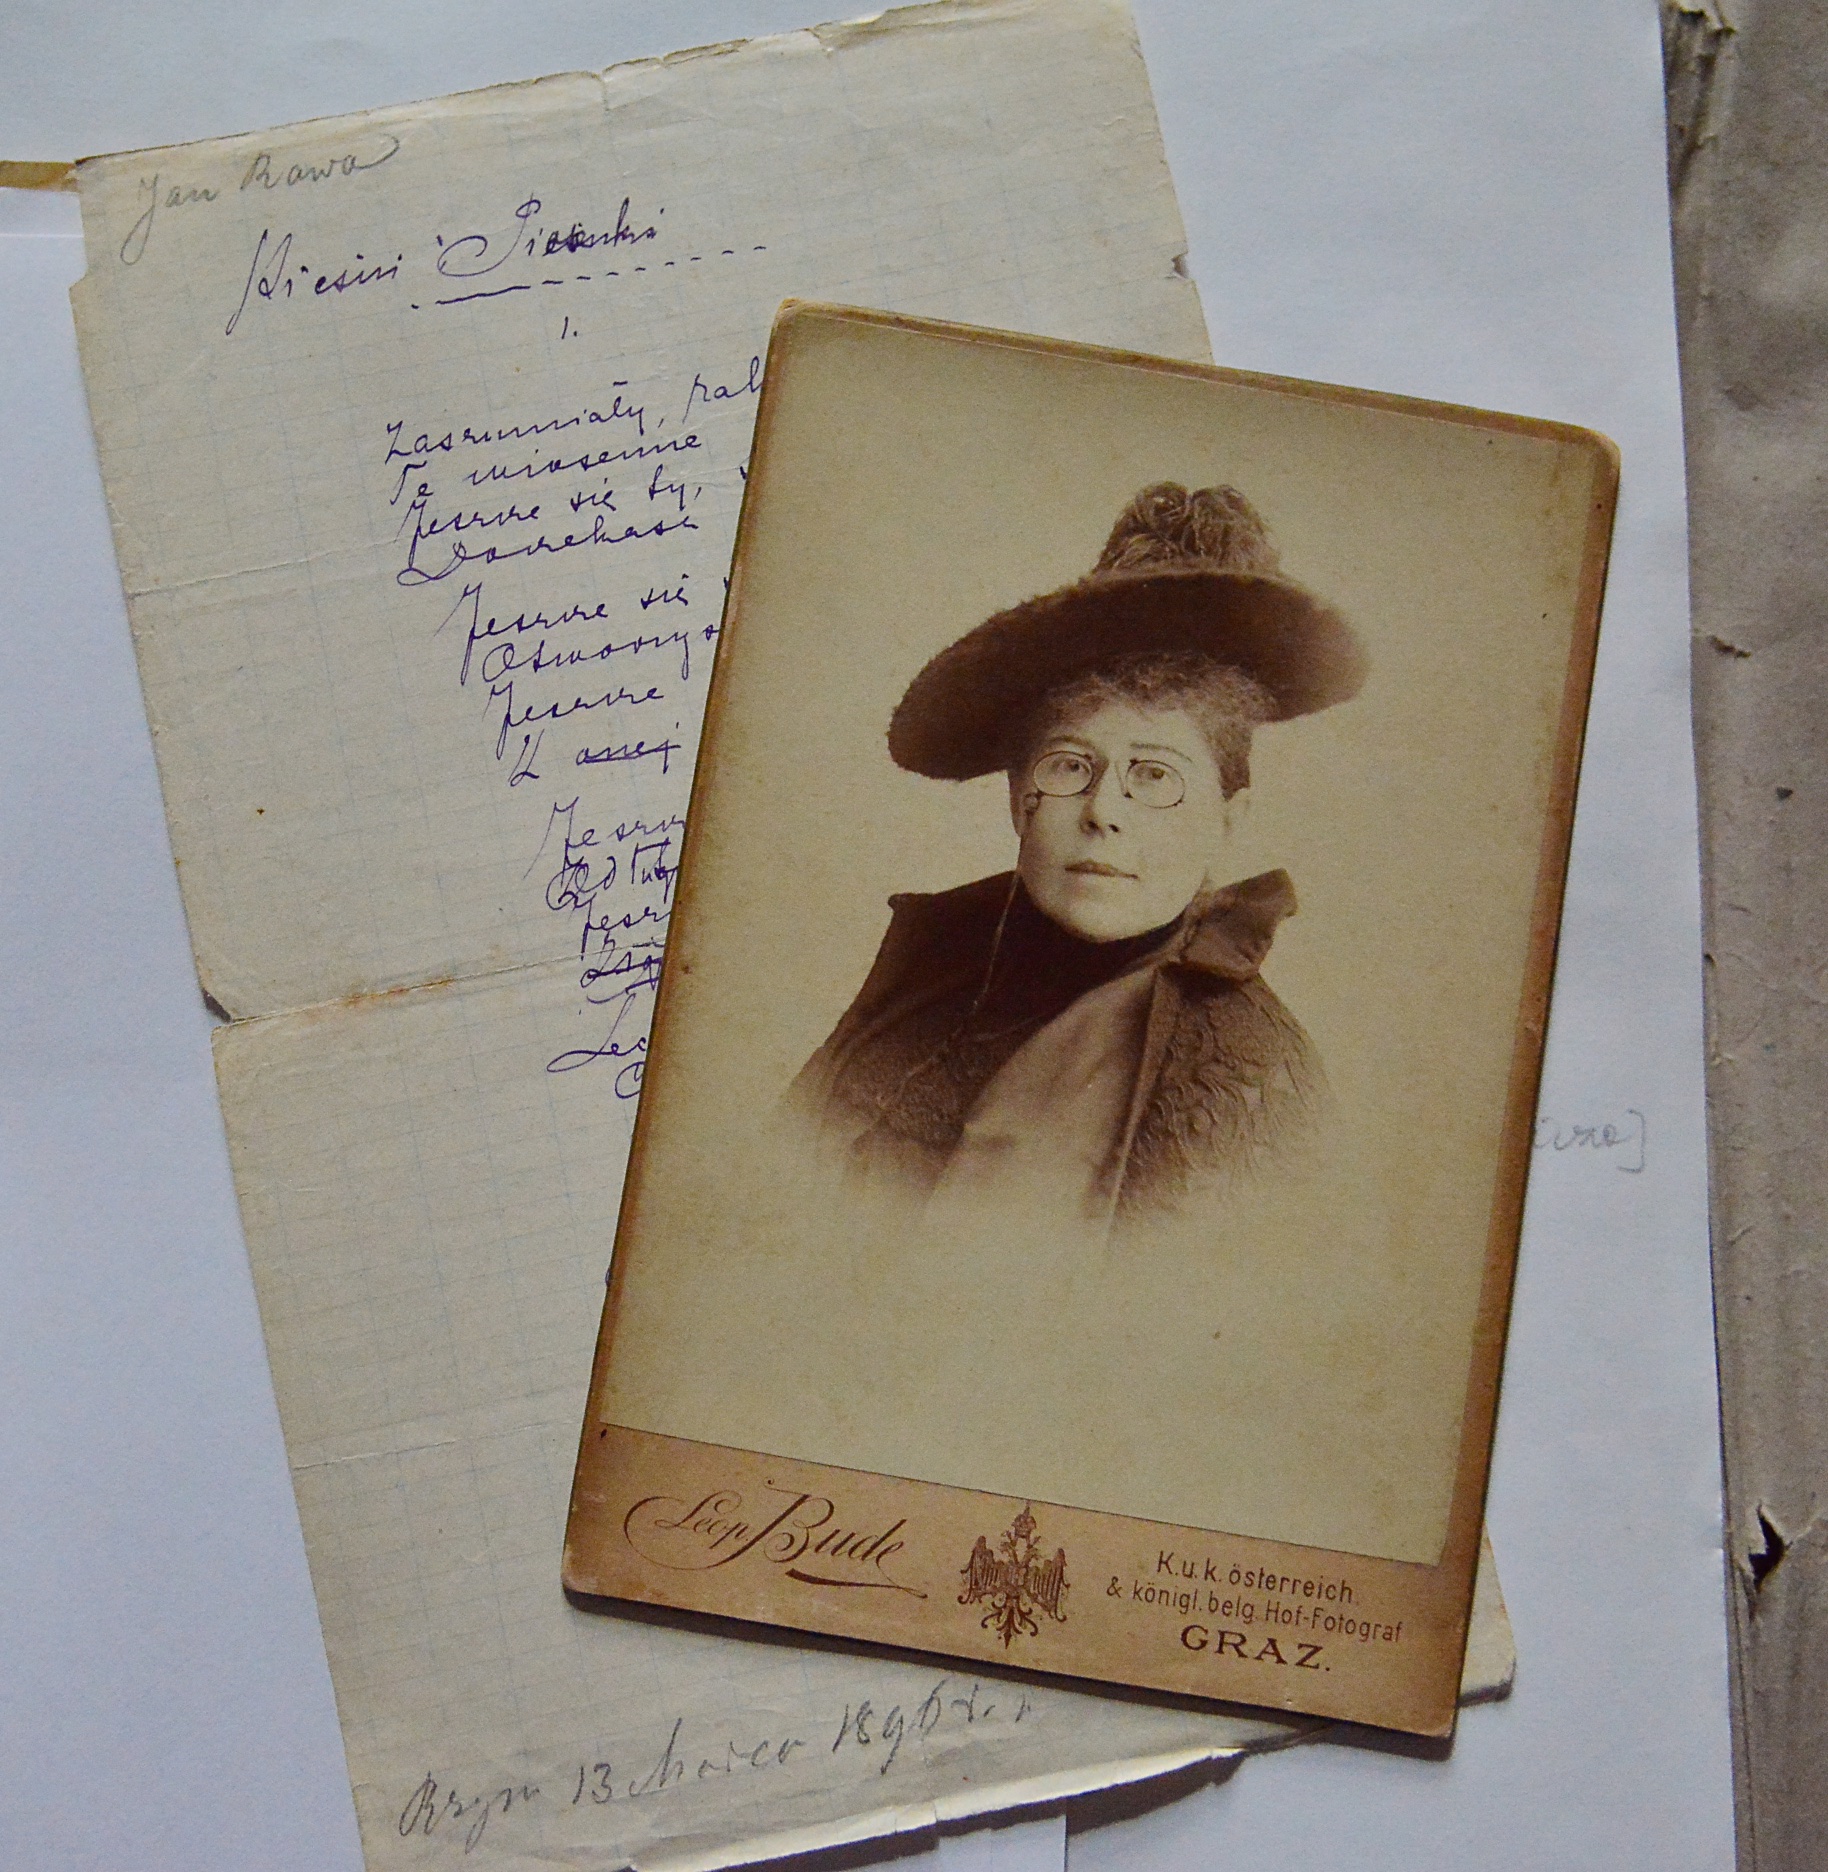 Jan Rawa
Pieśni i Piosnki
1.
Zaszumiały, zal
Te wiosenne
Jeszcze się ty,
Doczekasz
Jeszcze się
Otworzys
Jeszcze
Z onej
Jeszcz
Od
Jeszc
Lec
Leop. Bude
K.u.k. österreich.
& königl. belg. Hof-Fotograf
GRAZ.
Rzym 13 Marca 1896 r.